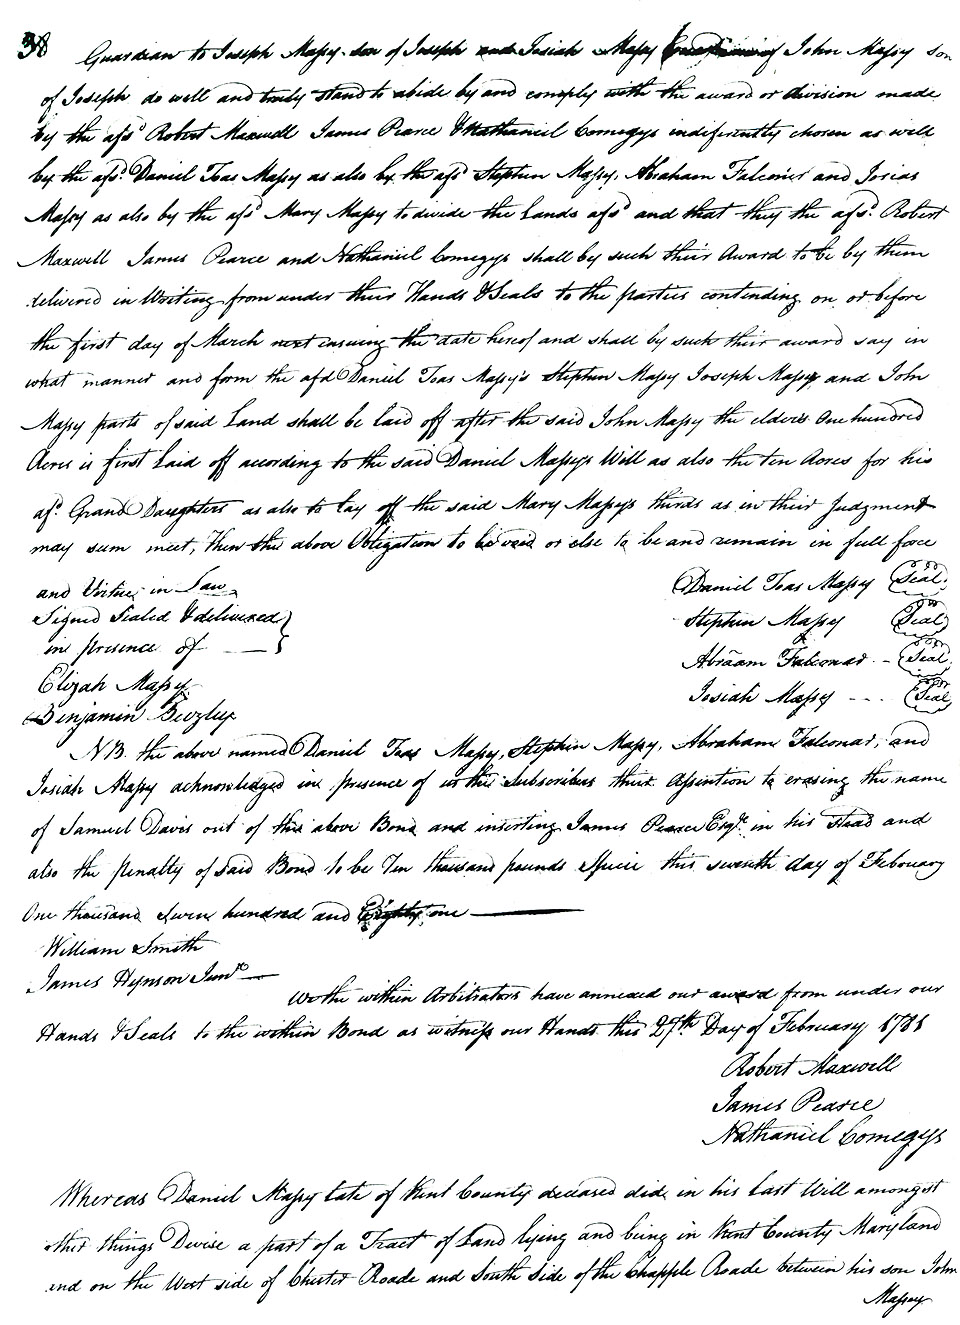 38
Guardian to Joseph Massy son of Joseph and Josiah Massy Guardian of John Massy son
of Joseph do well and truly stand to abide by and comply with the award or division made
by the afsd Robert Maxwell James Pearce & Nathaniel Comegys indiferently chosen as well
by the afsd. Daniel Toas Massy as also by the afsd Stephen Massy, Abraham Falconer and Josias
Massy as also by the afsd Mary Massy to divide the Lands afsd and that they the afsd. Robert
Maxwell James Pearce and Nathaniel Comegys shall by such their Award to be by them
delivered in Writing from under their Hands & Seals to the parties contending on or before
the first day of March next ensuing the date hereof and shall by such their award say in
what manner and form the afd Daniel Toas Massy's Stephen Massy Joseph Massy and John
Massy parts of said Land shall be laid off after the said John Massy the elders One hundred
Acres is first Laid off according to the said Daniel Massys Will as also the ten Acres for his
afd. Grand Daughters as also to lay off the said Mary Massy's thirds as in their Judgment
may sum meet, then the above Obligation to be void or else to be and remain in full force
and Virtue in Law
Signed Sealed & delivered
in presence of
Elijah Massy
Benjamin Beezley
Daniel Toas Massy Seal
Stephen Massy Seal
Abraam Falconar Seal
Josiah Massy Seal
NB. the above named Daniel Toas Massy, Stephen Massy, Abraham Falconar, and
Josiah Massy acknowledged in presence of us the Subscribers their Assention to erasing the name
of Samuel Davis out of the above Bond and inserting James Pearce Esqr. in his Stead and
also the penalty of said Bond to be Ten thousand pounds Specie this seventh day of Febouary
One thousand seven hundred and Eighty one
William Smith
James Hynson Junr.
We the within Arbitrators have annexed our award from under our
Hands & Seals to the within Bond as witness our Hands this 27th Day of February 1781
Robert Maxwell
James Pearce
Nathaniel Comegys
Whereas Daniel Massy late of Kent County deceased did in his Last Will amongst
other things Devise a part of a Tract of Land lying and being in Kent County Maryland
and on the West side of Chester Roade and South Side of the Chapple Roade between his son John
Massey